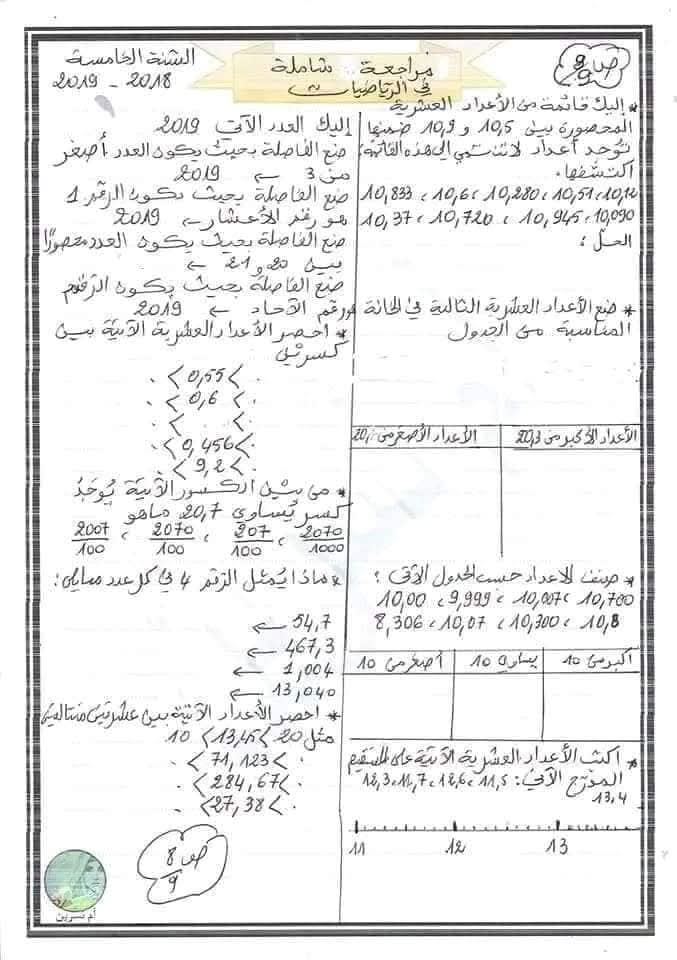 ص 8/9
مراجعة شاملة
في الرياضيات
السنة الخامسة
2018 - 2019
* إليك قائمة من الأعداد العشرية
المحصورة بين 10,5 و 10,9 ضمنها
توجد أعداد لا تنتمي إلى هذه القائمة
اكتشفها.
10,12 ، 10,51 ، 10,280 ، 10,6 ، 10,833
10,090 ، 10,945 ، 10,720 ، 10,37
الحل :
* ضع الأعداد العشرية التالية في الخانة
المناسبة من الجدول
الأعداد الأكبر من 20,3
الأعداد الأصغر من
* صنف الأعداد حسب الجدول الآتي :
10,700 ، 10,007 ، 9,999 ، 10,00
10,8 ، 10,300 ، 10,07 ، 8,306
أكبر من 10 | يساوي 10 | أصغر من 10
* اكتب الأعداد العشرية الآتية على المستقيم
المدرج الآتي : 11,5 ، 12,6 ، 11,7 ، 12,3
13,4
11 12 13
إليك العدد الآتي 2019
ضع الفاصلة بحيث يكون العدد أصغر
من 3 ← 2019
ضع الفاصلة بحيث يكون الرقم 1
هو رقم الأعشار ← 2019
ضع الفاصلة بحيث يكون العدد محصورا
بين 20 و 21 ←
ضع الفاصلة بحيث يكون الرقم
هو رقم الآحاد ← 2019
* احصر الأعداد العشرية الآتية بين
كسرين
. > 0,55 > .
. > 0,6 > .
. > >
. > 0,456 > .
> 9,2 > .
* من بين الكسور الآتية يُوجَدُ
كسر يُساوي 20,7 ماهو
2070/1000 ، 207/100 ، 2070/100 ، 2007/100
* ماذا يُمثل الرقم 4 في كل عدد ممايلي :
54,7 ←
467,3 ←
1,004 ←
13,040 ←
* احصر الأعداد الآتية بين عشريتين متتاليتين
مثل 20 > 13,45 > 10
. > 71,123 > .
. > 284,67 > .
. > 27,38 > .
ص 8/9
أم نسرين